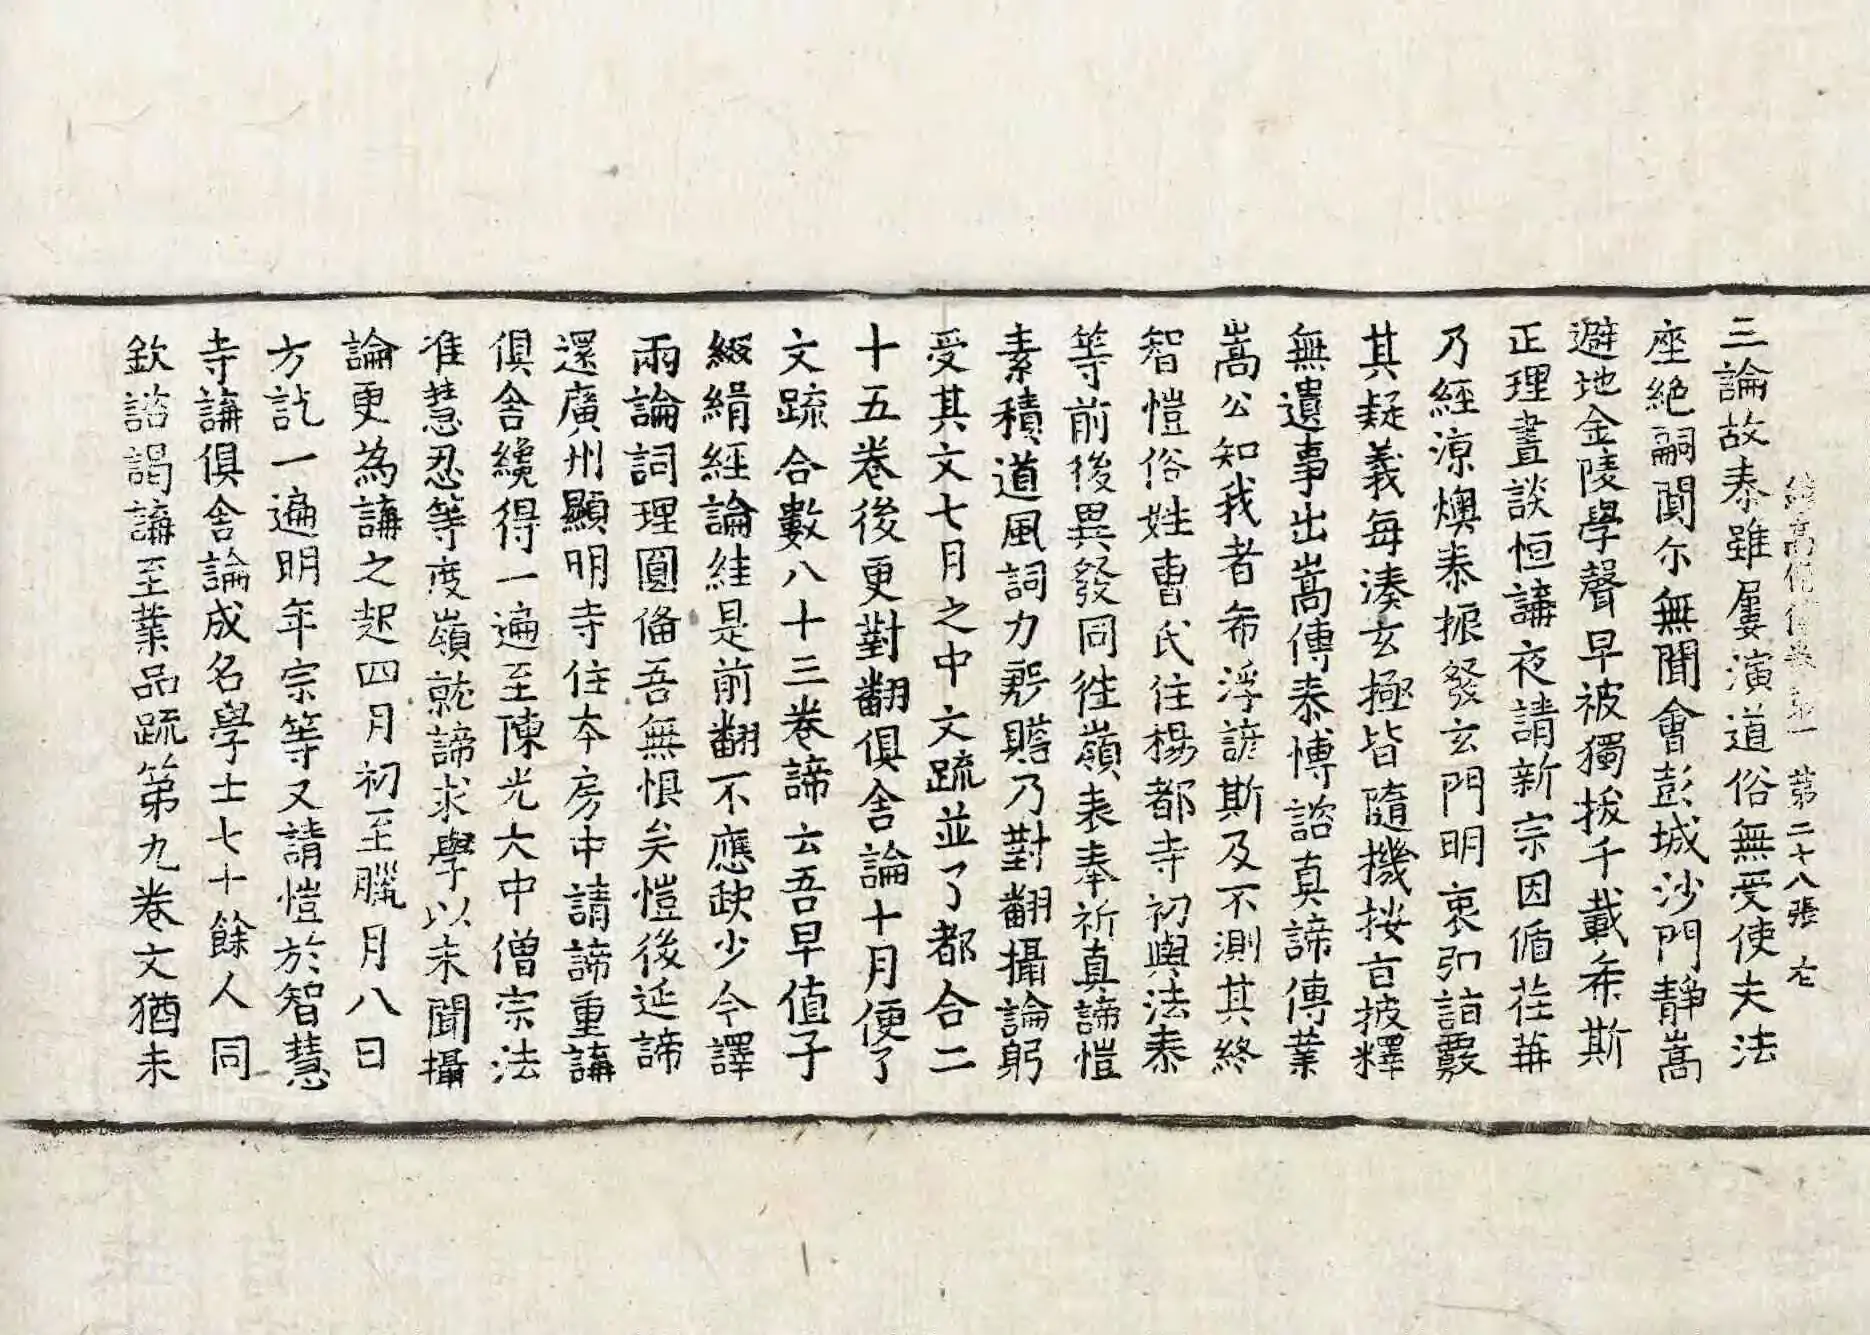 續高僧傳卷第一 第二十八張 右
三論故泰雖屢演道俗無受使夫法
座絶嗣闃尒無聞會彭城沙門靜嵩
避地金陵學聲早被獨拔千載希斯
正理晝談恒講夜請新宗因循荏苒
乃經涼燠泰振發玄門明衷弘詣覈
其疑義每湊玄極皆隨機按旨披釋
無遺事出嵩傳泰博諮真諦傳業
嵩公知我者希浮諺斯及不測其終
智愷俗姓曺氏住楊都寺初與法泰
等前後異發同徃嶺表奉祈真諦愷
素積道風詞力殷贍乃對翻攝論躬
受其文七月之中文䟽並了都合二
十五卷後更對翻俱舍論十月便了
文䟽合數八十三卷諦云吾早值子
綴緝經論絓是前翻不應缺少今譯
兩論詞理圓俻吾無恨矣愷後延諦
還廣州顯明寺住夲房中請諦重講
俱舍纔得一遍至陳光大中僧宗法
准慧忍等度嶺就諦求學以未聞攝
論更為講之起四月初至臘月八日
方訖一遍明年宗等又請愷於智慧
寺講俱舍論成名學士七十餘人同
欽諮謁講至業品䟽第九卷文猶未